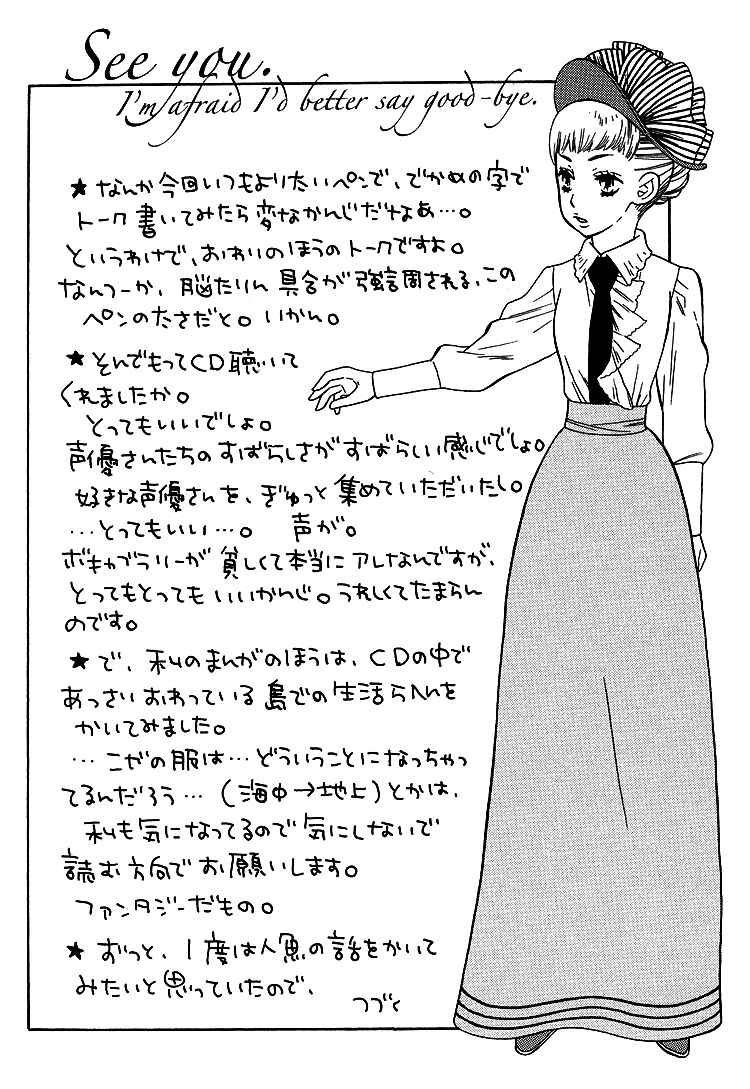 See you.
I'm afraid I'd better say good-bye.
★なんか今回いつもより太いペンで、でかめの字で
トーク書いてみたら変なかんじだなぁ…。
というわけで、おわりのほうのトークですよ。
なんつーか、脳たりん具合が強調される、この
ペンの太さだと。いかん。
★そんでもってCD聴いて
くれましたか。
とってもいいでしょ。
声優さんたちのすばらしさがすばらしい感じでしょ。
好きな声優さんを、ぎゅっと集めていただいたし。
…とってもいい…。 声が。
ボキャブラリーが貧しくて本当にアレなんですが、
とってもとってもいいかんじ。うれしくてたまらん
のです。
★で、私のまんがのほうは、CDの中で
あっさいおわっている島での生活らへんを
かいてみました。
…こぜの服は…どういうことになっちゃっ
てるんだろう…(海中→地上)とかは、
私も気になってるので気にしないで
読む方向でお願いします。
ファンタジーだもの。
★ずっと、1度は人魚の話をかいて
みたいと思っていたので、
つづく